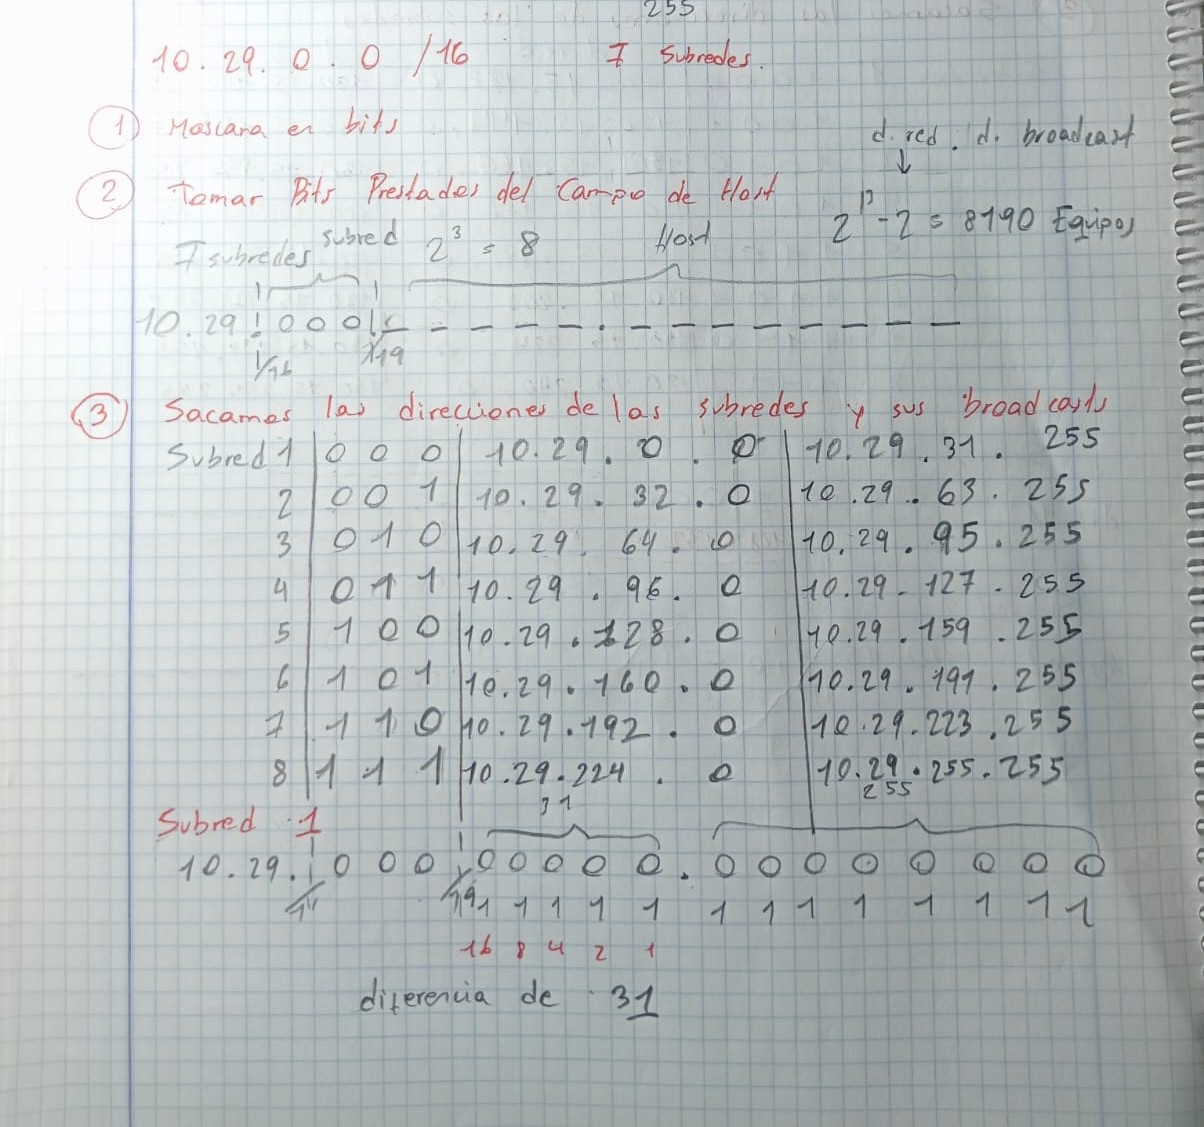 255
10.29.0.0 /16 7 Subredes.
1 Mascara en bits
d. red. d. broadcast
2 Tomar Bits Prestados del Campo de Host
2^13 - 2 = 8190 Equipos
7 subredes subred 2^3 = 8 Host
10.29 ! 0 0 0 ! _ _ _ _ _ . _ _ _ _ _ _ _ _
/16 /19
3 Sacamos las direcciones de las subredes y sus broadcasts
Subred 1 | 0 0 0 | 10.29.0.0 | 10.29.31.255
2 | 0 0 1 | 10.29.32.0 | 10.29.63.255
3 | 0 1 0 | 10.29.64.0 | 10.29.95.255
4 | 0 1 1 | 10.29.96.0 | 10.29.127.255
5 | 1 0 0 | 10.29.128.0 | 10.29.159.255
6 | 1 0 1 | 10.29.160.0 | 10.29.191.255
7 | 1 1 0 | 10.29.192.0 | 10.29.223.255
8 | 1 1 1 | 10.29.224.0 | 10.29.255.255
31 255
Subred 1
10.29. 0 0 0 0 0 0 0 0 . 0 0 0 0 0 0 0 0
/19 1 1 1 1 1 1 1 1 1 1 1 1 1
16 8 4 2 1
diferencia de 31